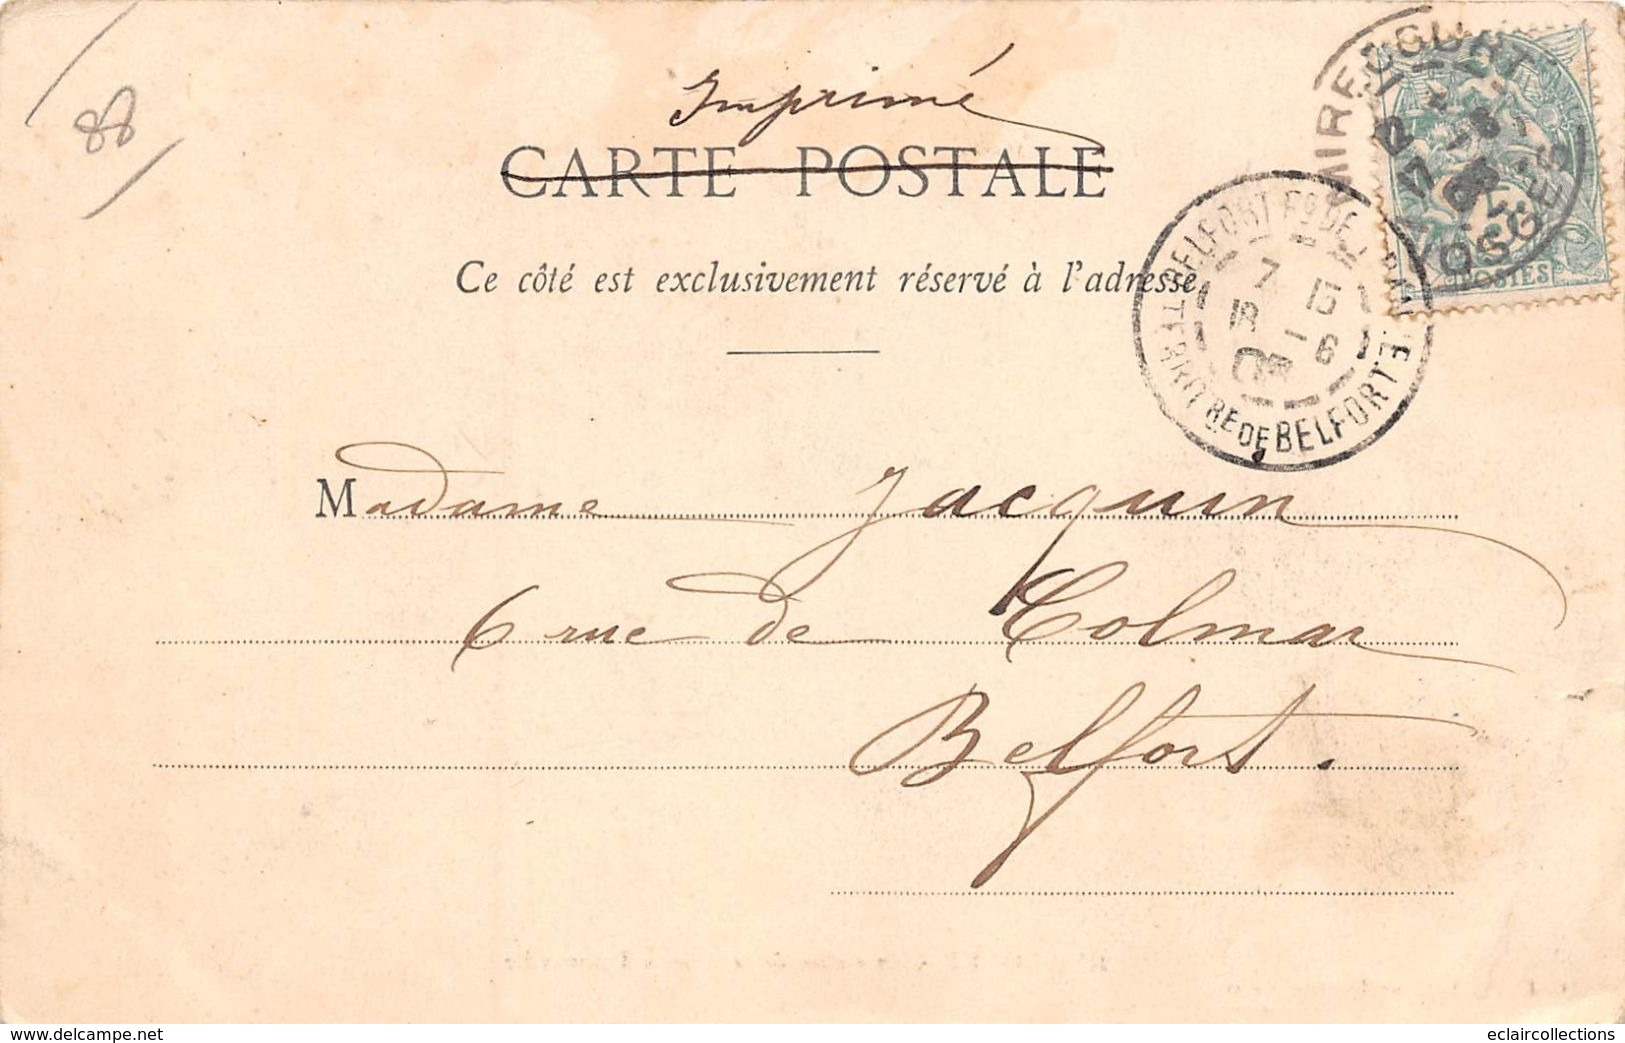 88
Imprimé
CARTE POSTALE
Ce côté est exclusivement réservé à l'adresse
MIRECOURT
VOSGES
12
17
POSTES
BELFORT Fg DE
7 15
18 -6
TERRITRE DE BELFORT
Madame Jacquin
6 rue de Colmar
Belfort.
www.delcampe.net
eclaircollections